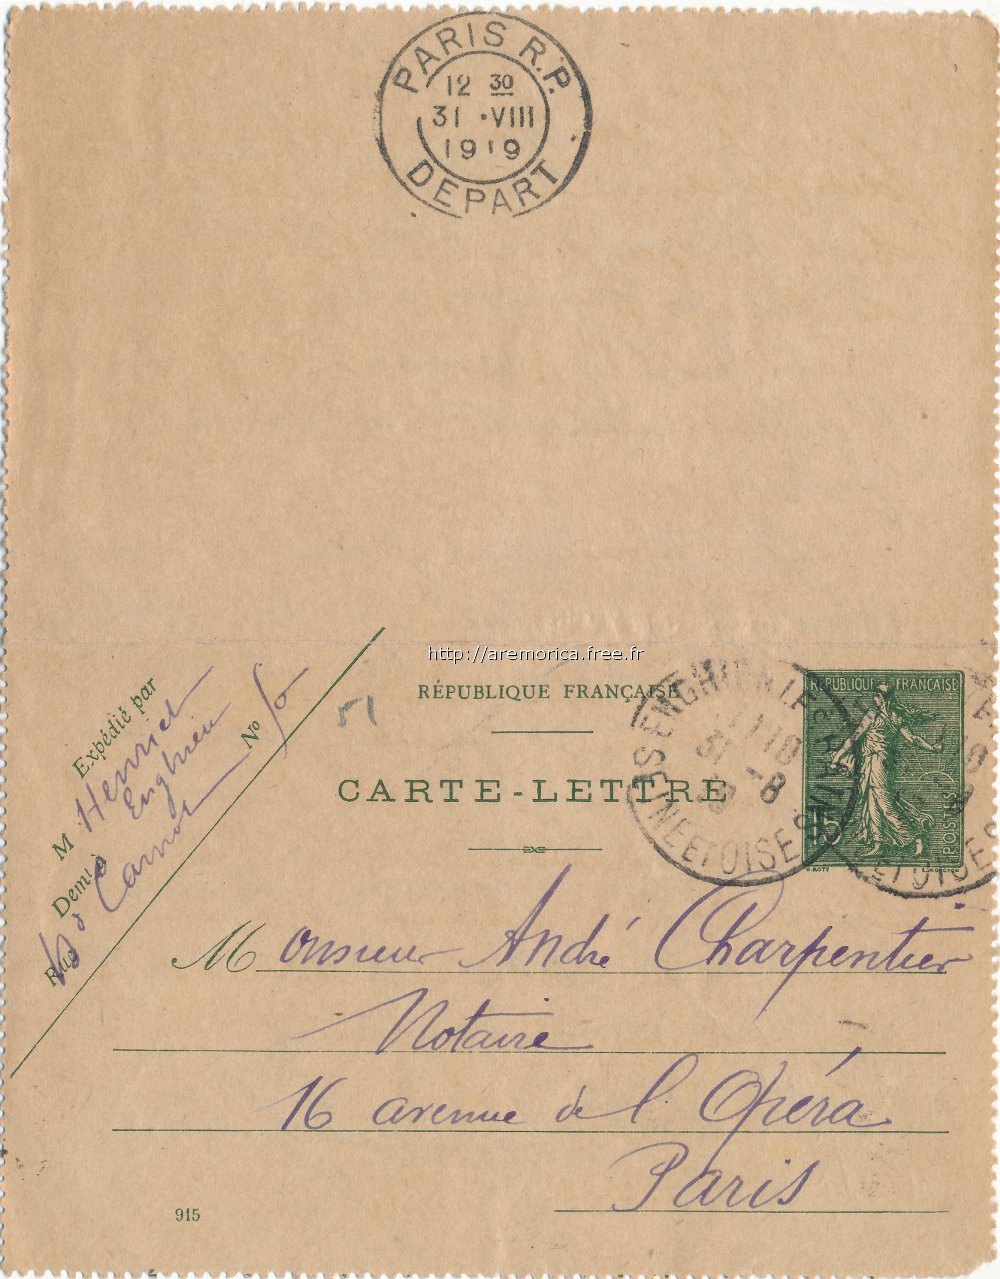 PARIS R.P.
12 30
31 · VIII
1919
DEPART
http://aremorica.free.fr
RÉPUBLIQUE FRANÇAISE
CARTE-LETTRE
Expédié par
M Henriet
Demt à Enghien
Rue Bd Carnot Nº 50
51
ENGHIEN
11 10
31 -8
SEINE ET OISE
RÉPUBLIQUE FRANÇAISE
15
POSTES
O. ROTY
ET OISE
Monsieur André Charpentier
Notaire
16 avenue de l'Opéra
Paris
915